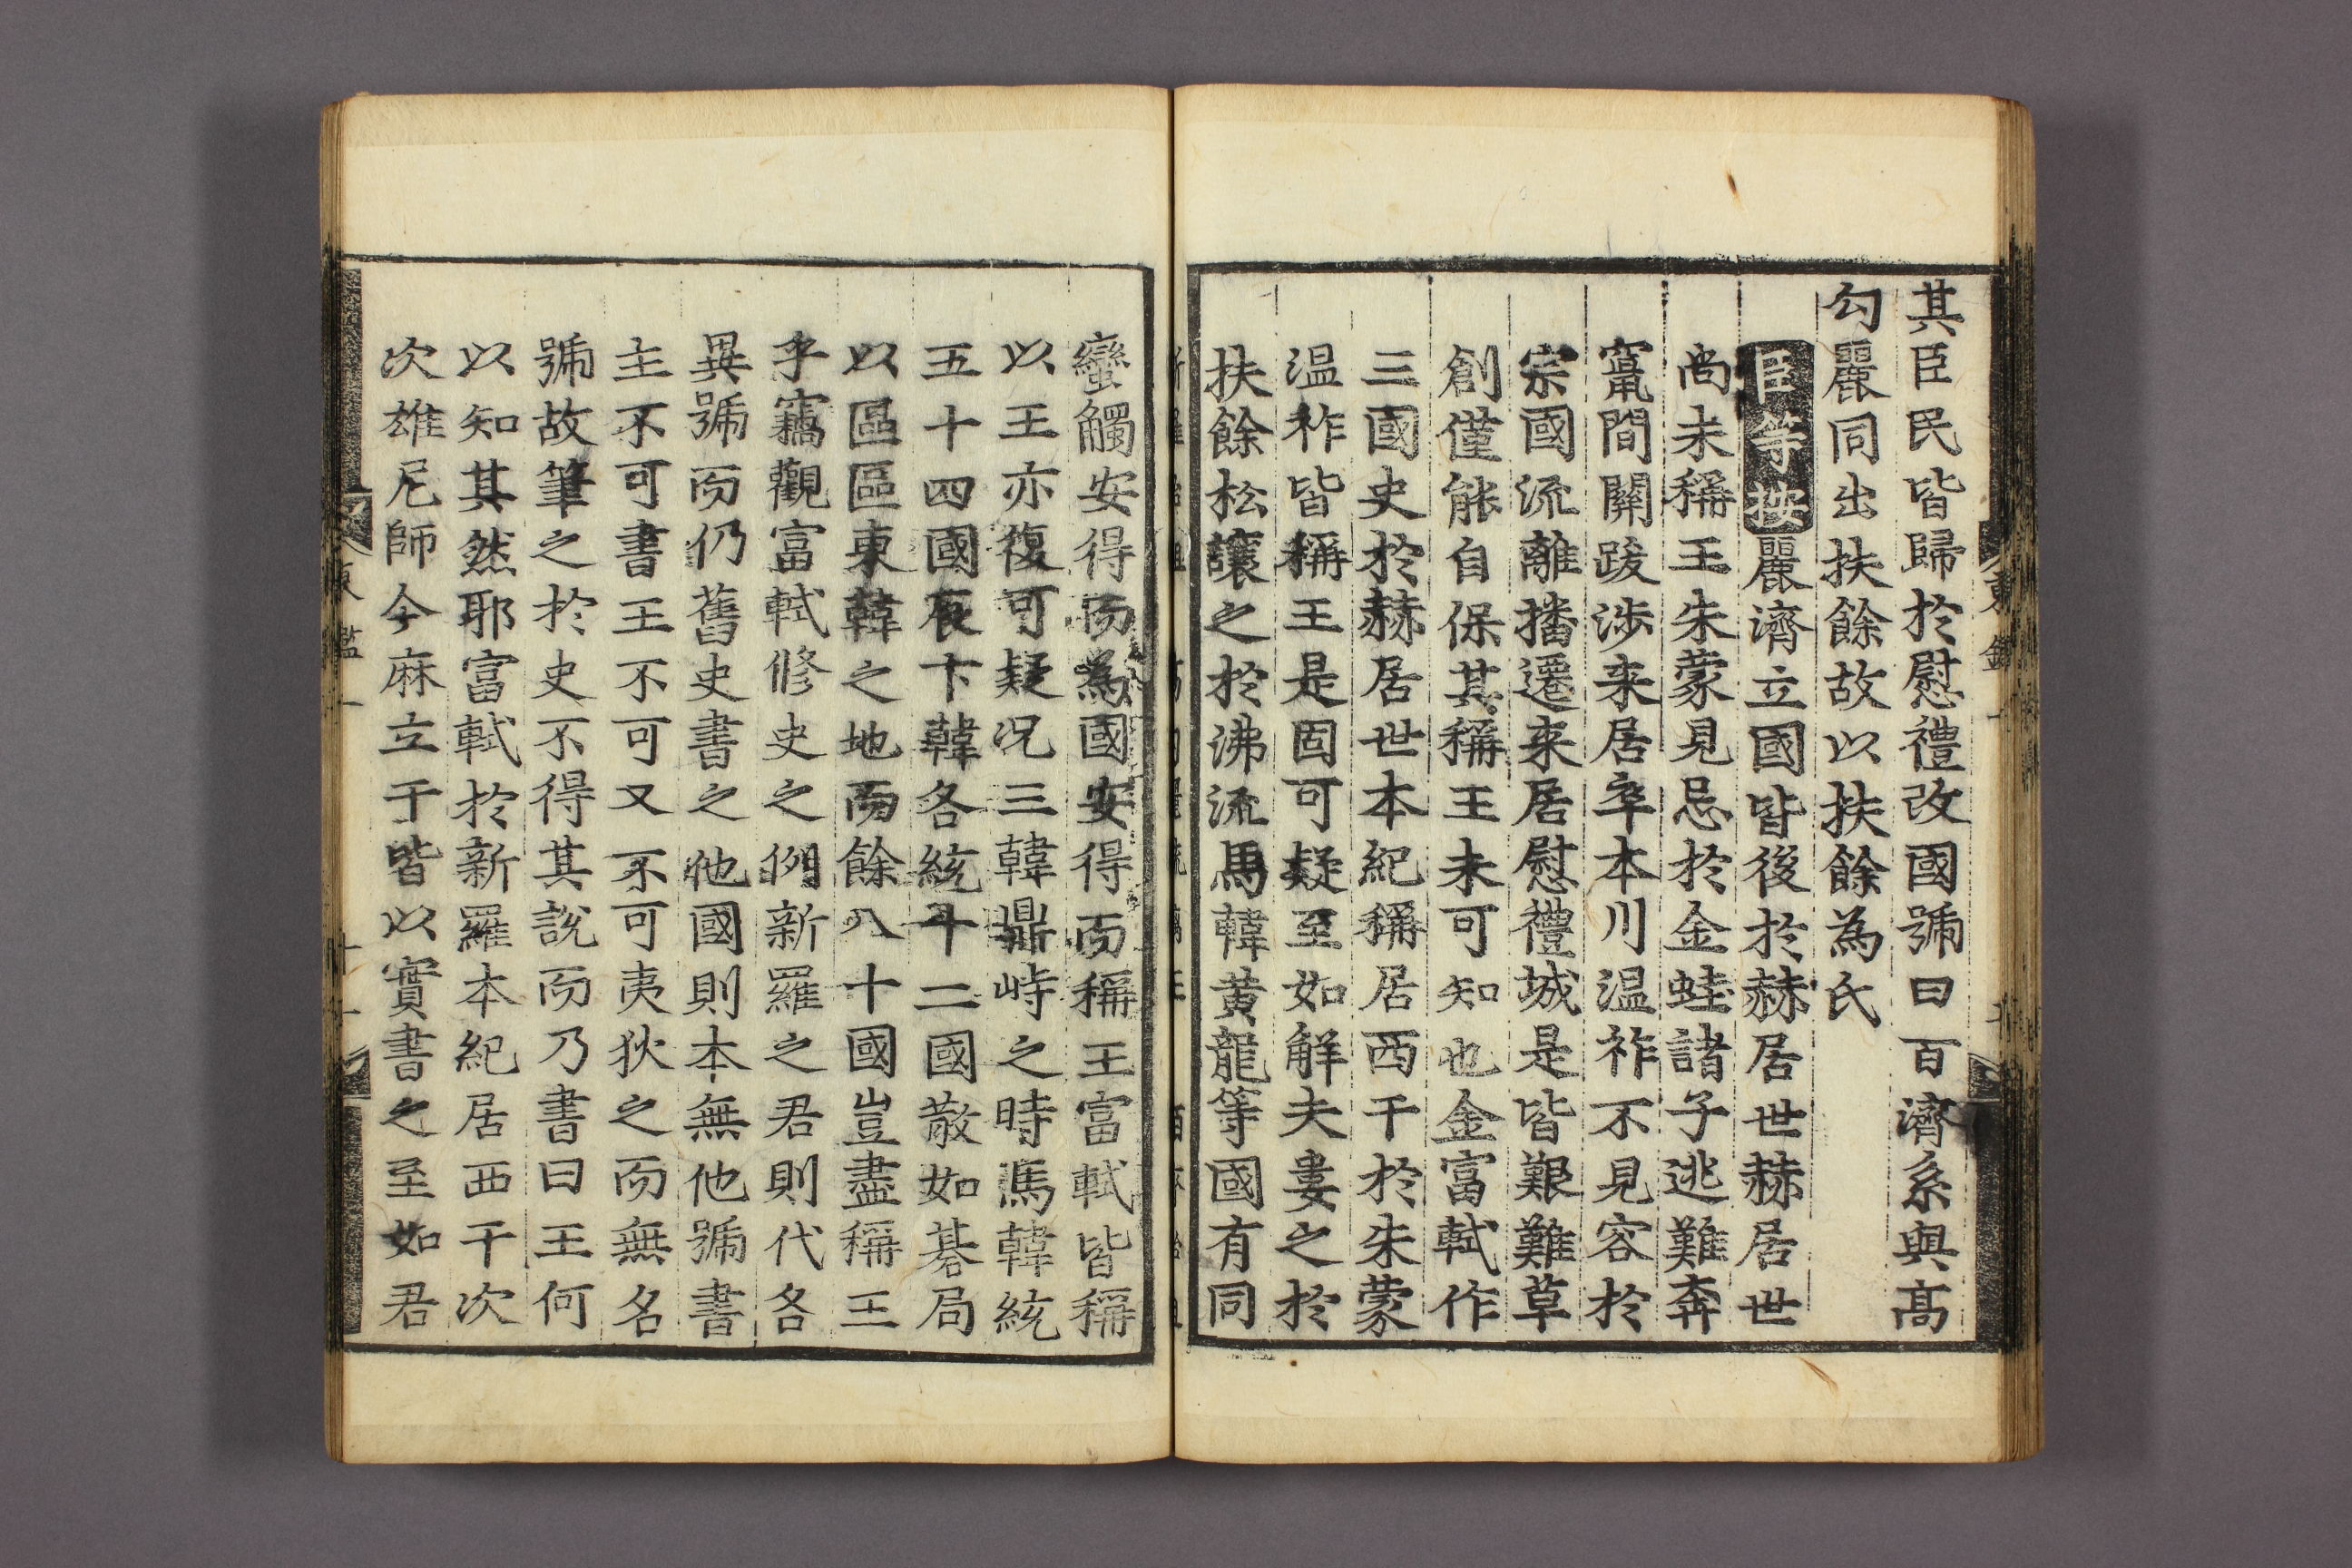 其臣民皆歸於慰禮改國號曰百濟系與髙
勾麗同出扶餘故以扶餘為氏
臣等按麗濟立國皆後於赫居世赫居世
尚未稱王朱蒙見忌於金蛙諸子逃難奔
竄間關跋涉来居卒本川温祚不見容於
宗國流離播遷来居慰禮城是皆艱難草
創僅能自保其稱王未可知也金富軾作
三國史於赫居世本紀稱居西干於朱蒙
温祚皆稱王是固可疑至如解夫婁之於
扶餘松讓之於沸流馬韓黄龍等國有同
蠻觸安得而為國安得而稱王富軾皆稱
以王亦復可疑况三韓鼎峙之時馬韓統
五十四國辰卞韓各統十二國散如碁局
以區區東韓之地而餘八十國豈盡稱王
乎竊觀富軾修史之例新羅之君則代各
異號而仍舊史書之他國則本無他號書
主不可書王不可又不可夷狄之而無名
號故筆之於史不得其說而乃書曰王何
以知其然耶富軾於新羅本紀居西干次
次雄尼師今麻立干皆以實書之至如君